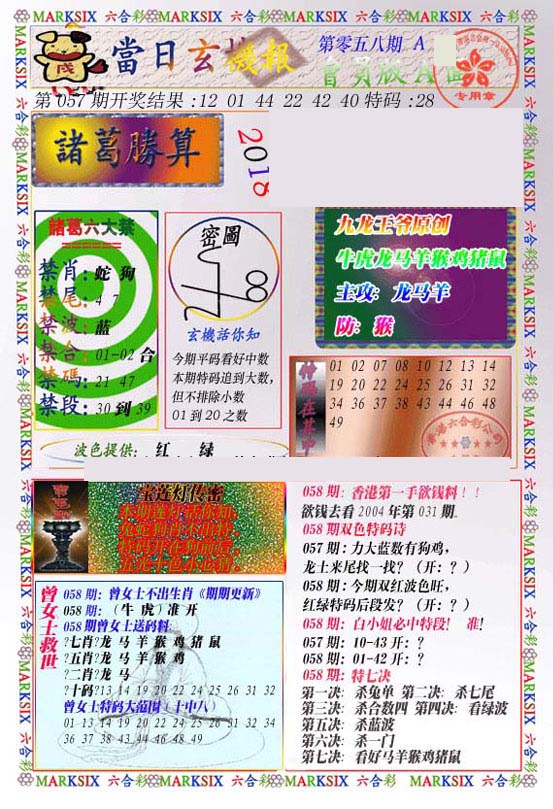 MARKSIX 六合彩 MARKSIX 六合彩 MARKSIX 六合彩 MARKSIX 六合彩
當日玄機報
第零五八期 A
專用章
第 057 期开奖结果 :12 01 44 22 42 40 特码 :28
諸葛勝算
2018
諸葛六大禁
禁肖: 蛇 狗
禁尾: 4 7
禁波: 蓝
禁合: 01-02 合
禁碼: 21 47
禁段: 30 到 39
密圖
玄機話你知
今期平码看好中数
本期特码追到大数,
但不排除小数
01 到 20 之数
九龙王爷原创
牛虎龙马羊猴鸡猪鼠
主攻: 龙马羊
防: 猴
特码在其中
01 02 07 08 10 12 13 14
19 20 22 24 25 26 31 32
34 36 37 38 43 44 46 48
49
波色提供: 红 绿
宝莲灯传密
曾女士救世
058 期: 曾女士不出生肖《期期更新》
058 期: (牛 虎) 准 开
058 期曾女士送码料:
?七肖?龙 马 羊 猴 鸡 猪 鼠
?五肖?龙 马 羊 猴 鸡
?二肖?龙 马
?十码?13 14 19 20 22 24 25 26 31 32
曾女士特码大范围 (十中八)
01 13 14 19 20 22 24 25 26 31 32 34
36 37 38 43 44 46 48 49
058 期: 香港第一手欲钱料 ! !
欲钱去看 2004 年第 031 期.
058 期双色特码诗
057 期: 力大蓝数有狗鸡,
龙士来尾找一找? (开: ? )
058 期: 今期双红波色旺,
红绿特码后段发? (开: ? )
058 期: 白小姐必中特段! 准!
057 期: 10-43 开: ?
058 期: 01-42 开: ?
058 期: 特七决
第一决: 杀兔单 第二决: 杀七尾
第三决: 杀合数四 第四决: 看绿波
第五决: 杀蓝波
第六决: 杀一门
第七决: 看好马羊猴鸡猪鼠
MARKSIX 六合彩 MARKSIX 六合彩 MARKSIX 六合彩 MARKSIX 六合彩